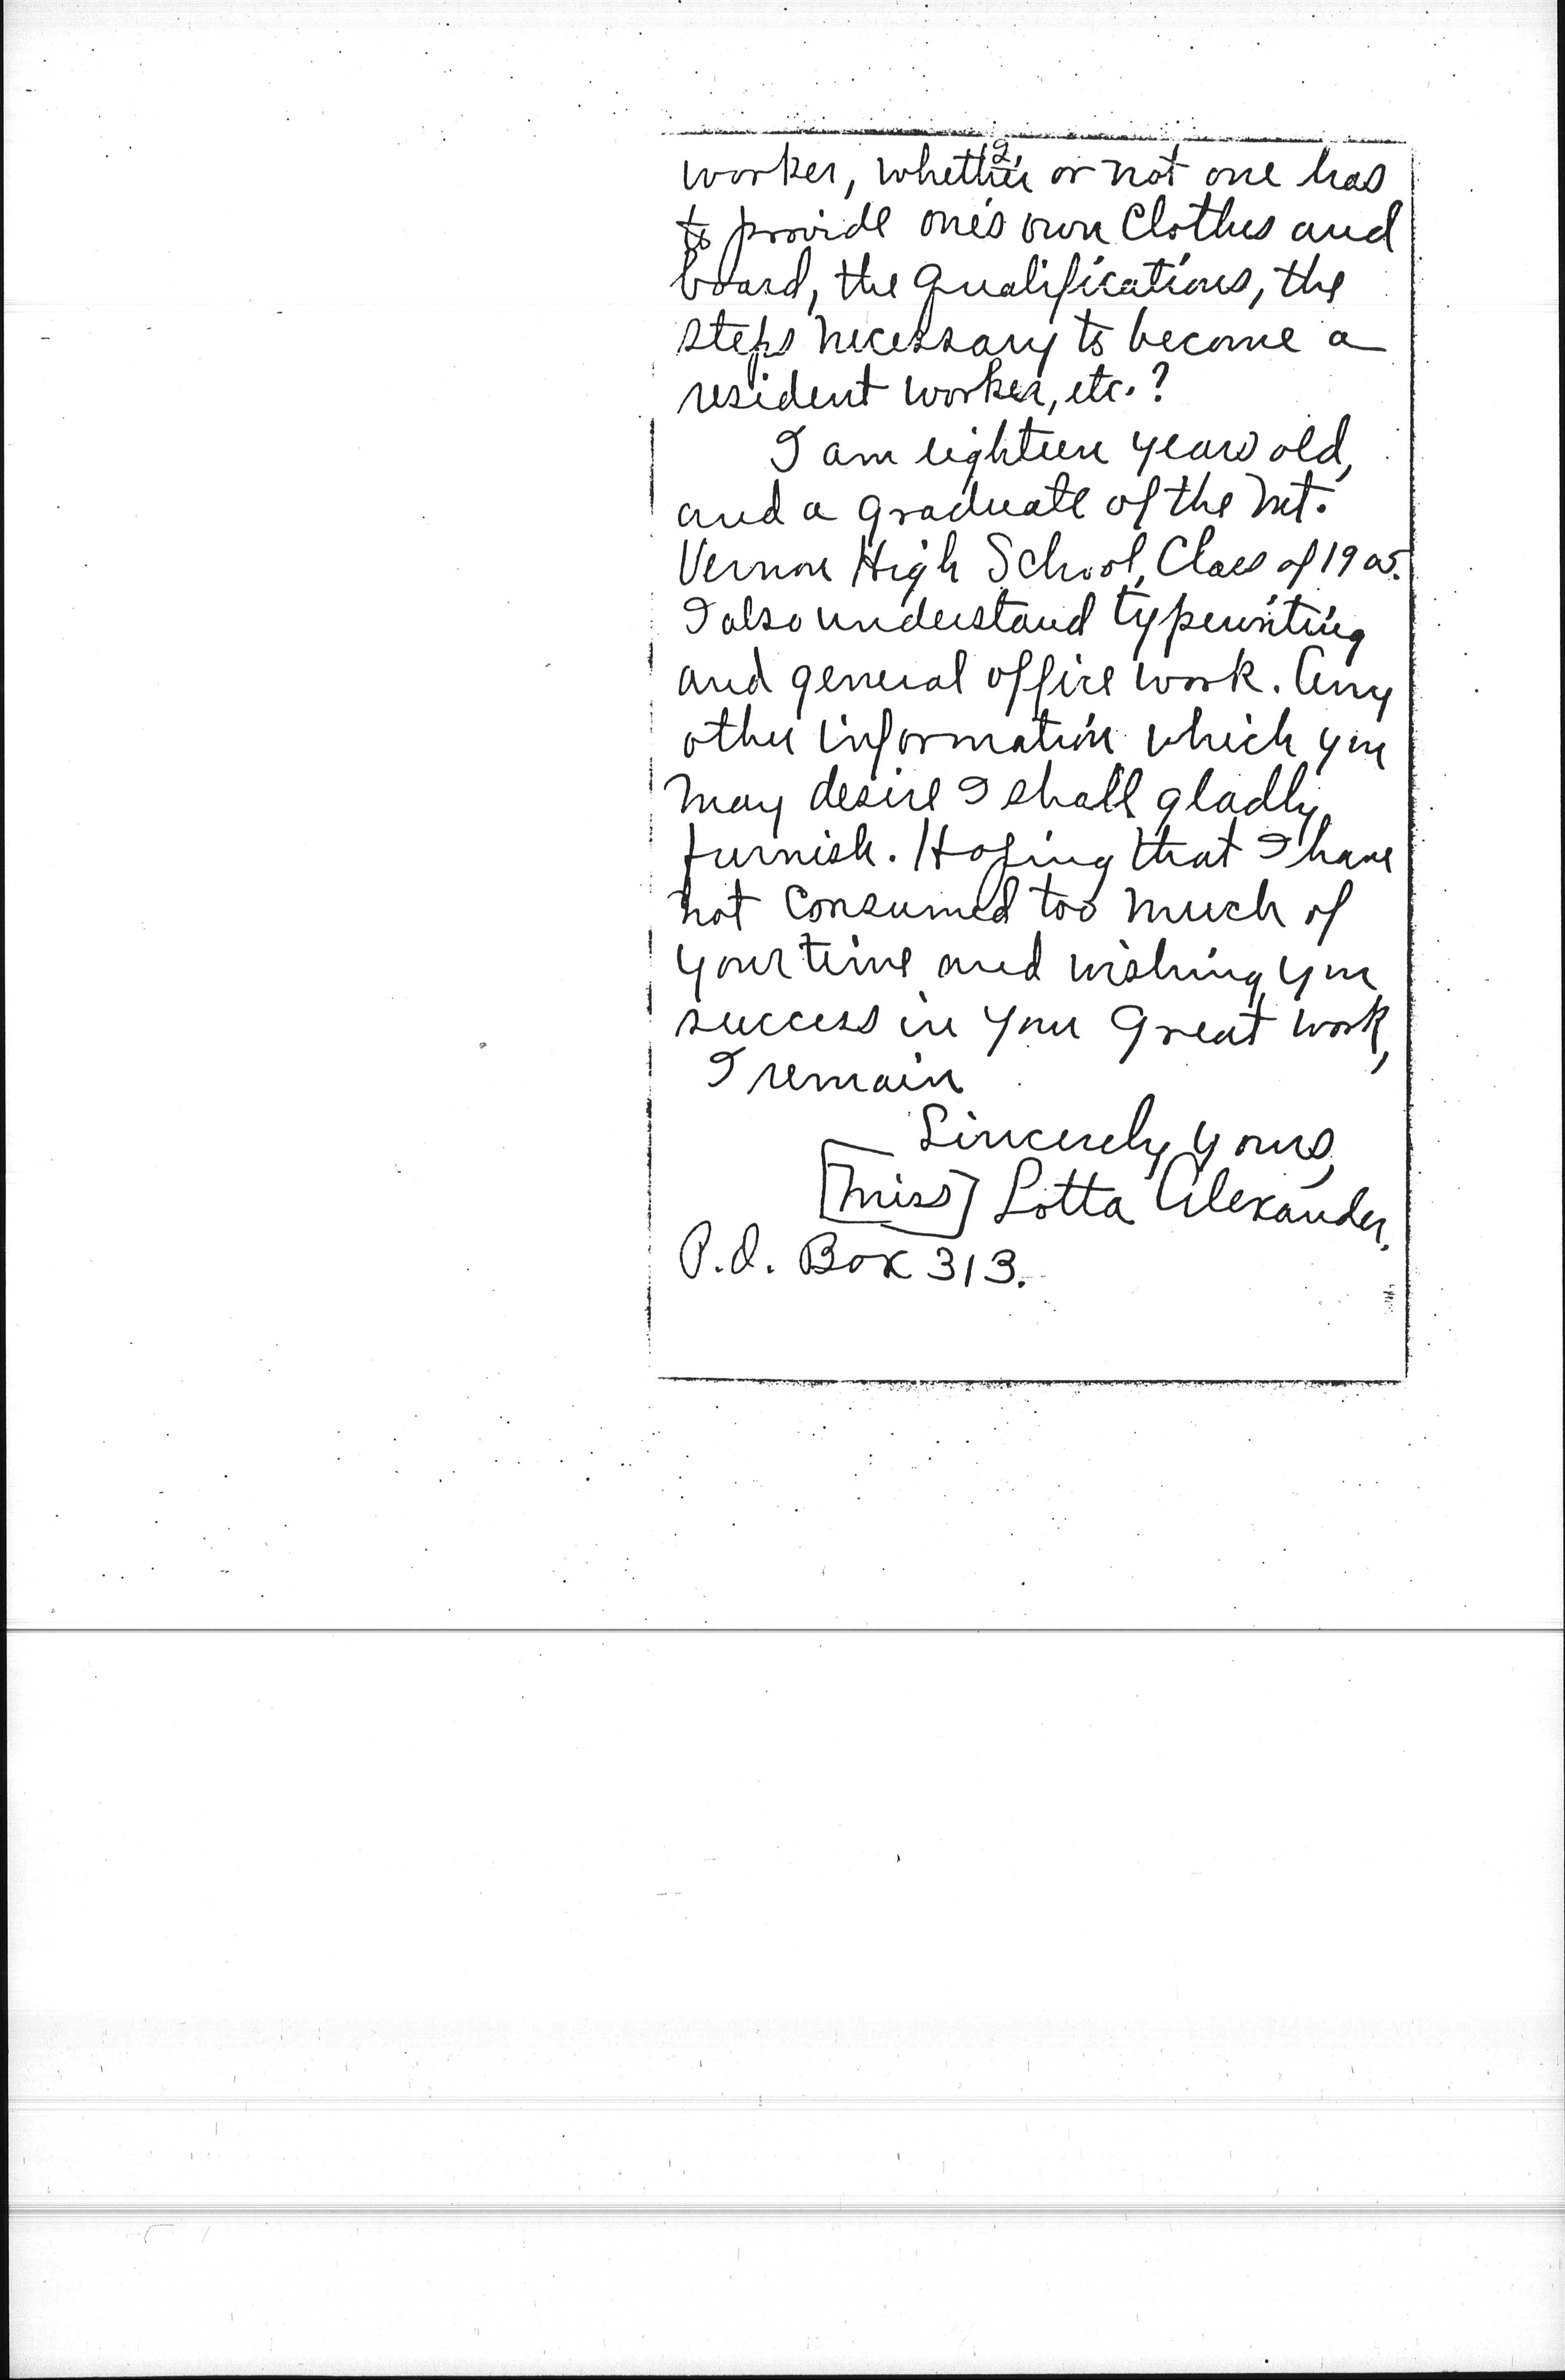 2.
worker, whether or not one has
to provide one's own clothes and
board, the qualifications, the
steps necessary to become a
resident worker, etc.?
I am eighteen years old,
and a graduate of the Mt.
Vernon High School, Class of 1905.
I also understand typewriting
and general office work. Any
other information which you
may desire I shall gladly
furnish. Hoping that I have
not consumed too much of
your time and wishing you
success in your great work,
I remain
Sincerely yours,
[Miss] Lotta Alexander.
P.O. Box 313.